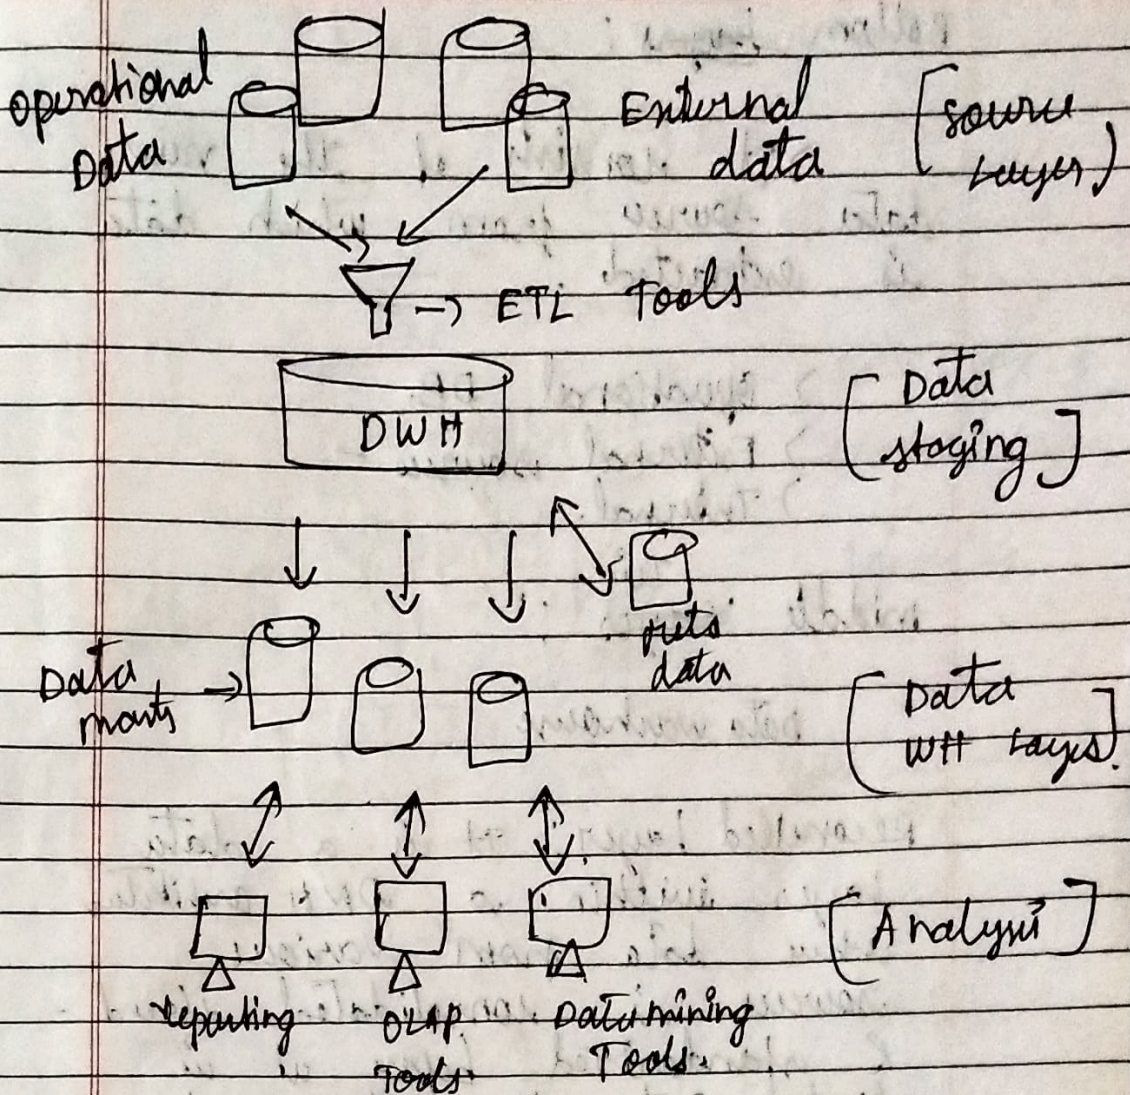 Operational
Data
External
data
[Source
Layer)
-> ETL Tools
DWH
[Data
staging]
meta
data
Data
marts ->
[Data
WH Layer].
[Analysis]
reporting
OLAP
Tools.
Data mining
Tools.